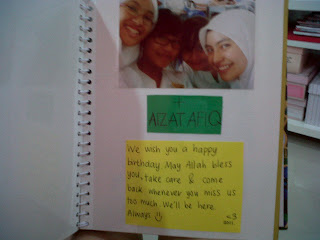 #
AIZAT AFIQ
We wish you a happy
birthday May Allah bless
you, take care & come
back whenever you miss us
too much. We'll be here.
Always